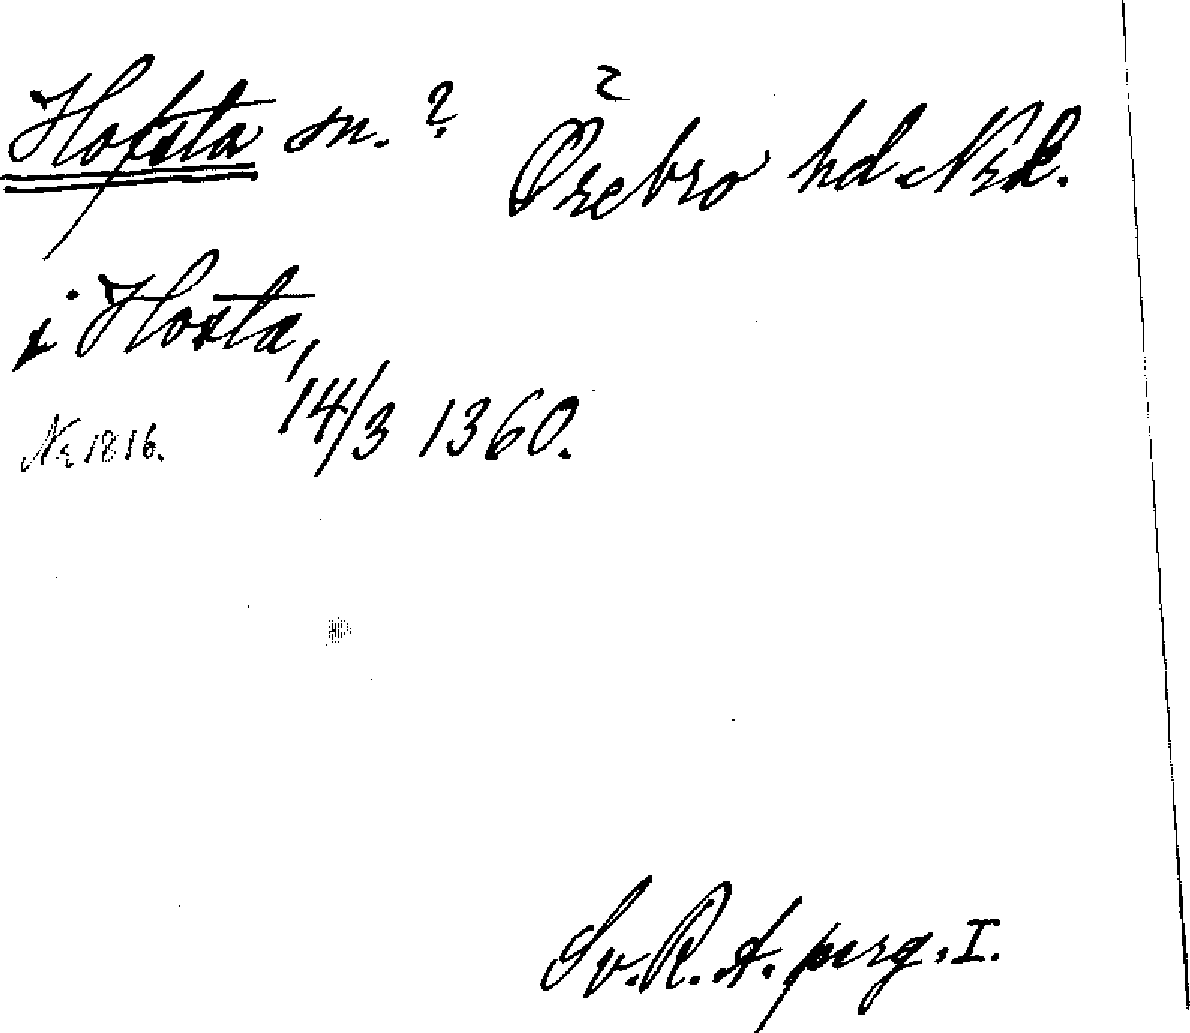 Hofsta sn. ? Örebro hd. Nrk.
i Hosta,
14/3 1360.
Nr 1816.
Sv. R. A. perg. I.